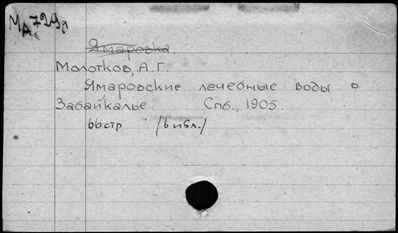 Ямаровка
Молотков, А.Г.
Ямаровские лечебные воды в
Забайкалье. Спб., 1905.
66стр. /Библ./